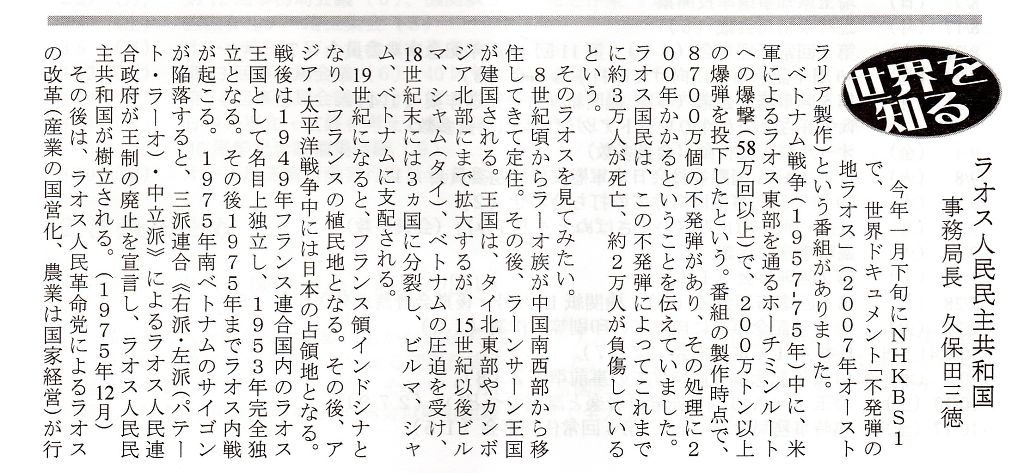 世界を
知る
ラオス人民民主共和国
事務局長 久保田三徳
今年一月下旬にNHKBS1
で、世界ドキュメント「不発弾の
地ラオス」(2007年オースト
ラリア製作)という番組がありました。
ベトナム戦争(1957-75年)中に、米
軍によるラオス東部を通るホーチミンルート
への爆撃(58万回以上)で、200万トン以上
の爆弾を投下したという。番組の製作時点で、
8700万個の不発弾があり、その処理に2
00年かかるということを伝えていました。
ラオス国民は、この不発弾によってこれまで
に約3万人が死亡、約2万人が負傷している
という。
そのラオスを見てみたい。
8世紀頃からラーオ族が中国南西部から移
住してきて定住。その後、ラーンサーン王国
が建国される。王国は、タイ北東部やカンボ
ジア北部にまで拡大するが、15世紀以後ビル
マ、シャム(タイ)、ベトナムの圧迫を受け、
18世紀末には3ヵ国に分裂し、ビルマ、シャ
ム、ベトナムに支配される。
19世紀になると、フランス領インドシナと
なり、フランスの植民地となる。その後、ア
ジア・太平洋戦争中には日本の占領地となる。
戦後は1949年フランス連合国内のラオス
王国として名目上独立し、1953年完全独
立となる。その後1975年までラオス内戦
が起こる。1975年南ベトナムのサイゴン
が陥落すると、三派連合《右派・左派(パテー
ト・ラーオ)・中立派》によるラオス人民連
合政府が王制の廃止を宣言し、ラオス人民民
主共和国が樹立される。(1975年12月)
その後は、ラオス人民革命党によるラオス
の改革(産業の国営化、農業は国家経営)が行